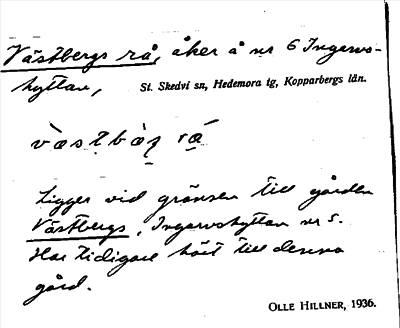 Västbergs rå, åker å nr 6 Ingarvs-
hyttan,
St. Skedvi sn, Hedemora tg, Kopparbergs län.
vȁstbȁṣ rá̱
Ligger vid gränsen till gården
Västbergs, Ingarvshyttan nr 5.
Har tidigare hört till denna
gård.
OLLE HILLNER, 1936.